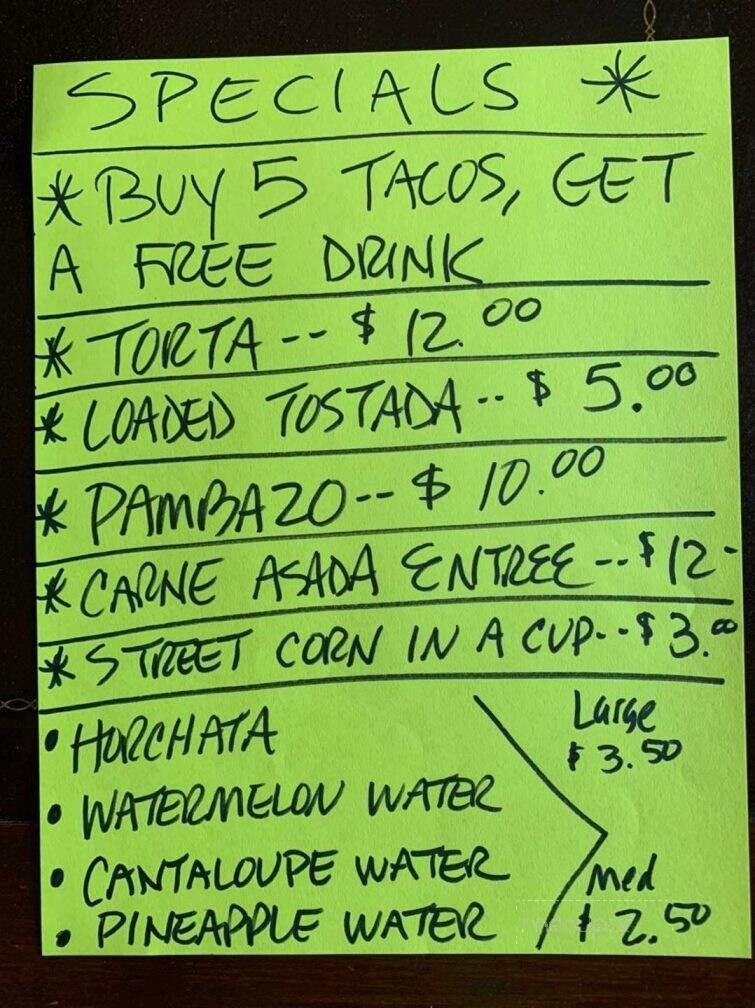 SPECIALS *
* BUY 5 TACOS, GET
A FREE DRINK
* TORTA -- $ 12.00
* LOADED TOSTADA -- $ 5.00
* PAMBAZO -- $ 10.00
* CARNE ASADA ENTREE -- $12-
* STREET CORN IN A CUP -- $3.00
• HORCHATA
• WATERMELON WATER
• CANTALOUPE WATER
• PINEAPPLE WATER
Large
$ 3.50
Med
$ 2.50